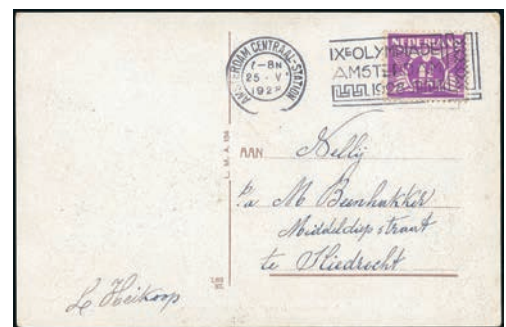 AMSTERDAM CENTRAAL-STATION
7-8N
25 V
1928
IXE OLYMPIADE
AMSTERDAM
1928
NEDERLAND
L. M. A. 134
AAN Nelly
p/a M Beenhakker
Middeldiepstraat
te Sliedrecht
L Heikoop